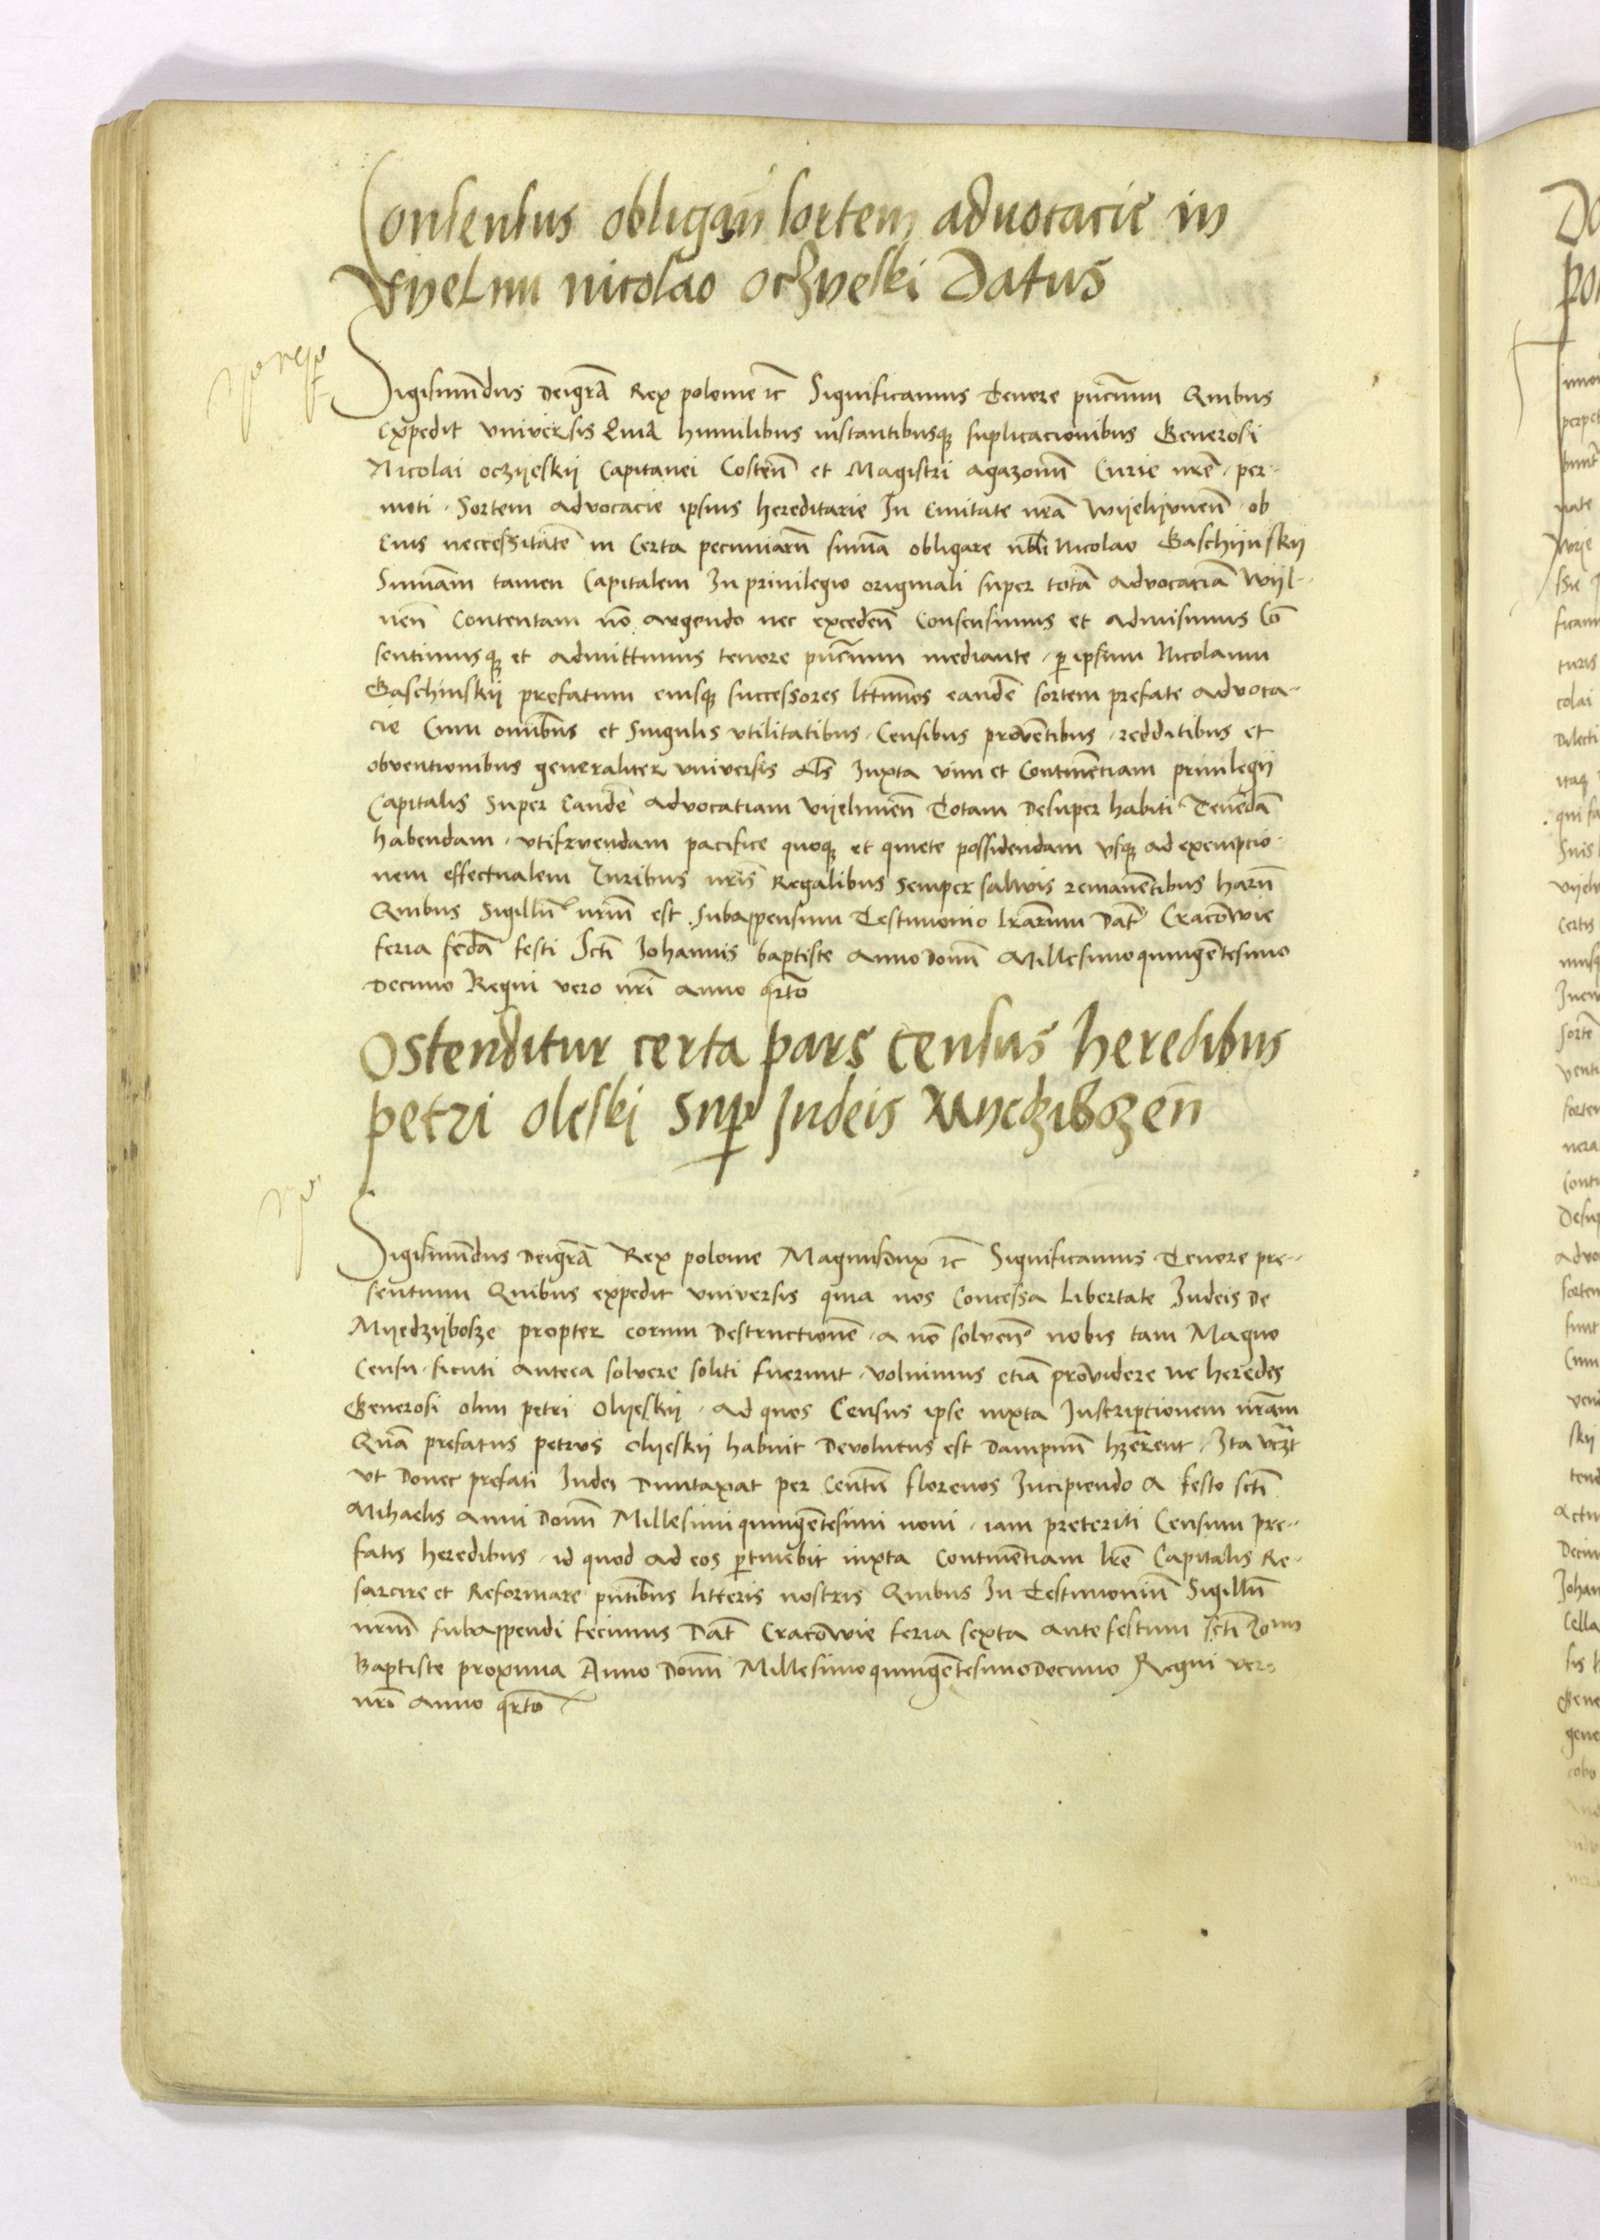 Consensus obligan̄ sortem advocacie in
Vyelun nicolao oczyeski Datus
Sigismūdus Deigrā Rex polonie ꝛc̄ Significamus Tenore pn̄cium Quibus
expedit universis Quia humilibus instantibusqꝫ suplicacionibus Generosi
Nicolai oczyeskij Capitanei Costeñ et Magistri agazonū Curie nr̄e · per-
moti · Sortem advocacie ipsius hereditarie In Civitate nr̄a Wyelyvnen̄ · ob
Eius neccessitatē in Certa pecuniarū sum̄a obligare nb̄li Nicolao Gaschijnskij
Sum̄am tamen Capitalem In privilegio originali super totā advocatiā Wijl-
nen̄ Contentam nō avgendo nec exceden̄ Consensimus et admisimus Cō
sentimusqꝫ et admittimus tenore pn̄cium mediante · ꝑ ipsum Nicolaum
Gaschinskij prefatum eiusqꝫ successores ltt̄imos eandē sortem prefate advoca-
cie Cum om̄ibus et Singulis vtilitatibus · Censibus provētibus · redditibus et
obventionibus generaliter universis als̄ Iuxta vim et Continētiam privilegij
Capitalis Super Eandē advocatiam Vyelunen̄ Totam Desuper habiti · Tenēdā
habendam · vtifruendam pacifice quoqꝫ et quiete possidendam vsqꝫ ad exemptio-
nem effectualem Iuribus nr̄is Regalibus semper salvis remanētibus harū
Quibus Sigillū nr̄um est subappensum Testimonio lr̄arum Dat̄ Cracowie
feria sed̄a festi Sct̄i Iohannis baptiste Anno Domī Millesimoquingētesimo
Decimo Regni vero nr̄i anno qrto
Ostenditur certa pars census heredibus
petri oleski Suꝑ Iudeis Myedzibozen̄
Sigismūdus Deigrā Rex polonie Magnus Dux ꝛc̄ Significamus Tenore pre-
sentium Quibus expedit vniversis quia nos Concessa Libertate Iudeis De
Myedzyboze propter eorum Destructionē · a nō solven̄ nobis tam Magno
Censu · sicuti Antea solvere soliti fuerunt · voluimus etiā providere ne heredes
Generosi olim petri Olyeskij · ad quos Census ipse iuxta Inscriptionem nr̄am
Quā prefatus petrus olyeskij habuit Devolutus est Dampnū hr̄ent · Ita vcꝫt
vt Donec prefati Iudei Duntaxat per Centū florenos Incipiendo a festo sct̄i
Mihaelis Anni Domī Millesimi quingētesimi noni · iam preteriti Censum pre-
fatis heredibus · id quod ad eos ꝑtinebit iuxta Continētiam lr̄e Capitalis Re-
sarcire et Reformare pn̄tibus litteris nostris Quibus In Testimoniū Sigillū
nr̄um subappendi fecimus Dat̄ Cracowie feria sexta ante festum sct̄i Ioan̄
Baptiste proxima Anno Domī Millesimoquingētesimo Decimo Regni vero
nr̄i anno qrto